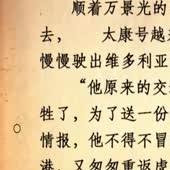 顺着万景光的
去， 太康号越
慢慢驶出维多利亚
“他原来的交
牲了，为了送一份
情报，他不得不冒
港，又匆匆返虎